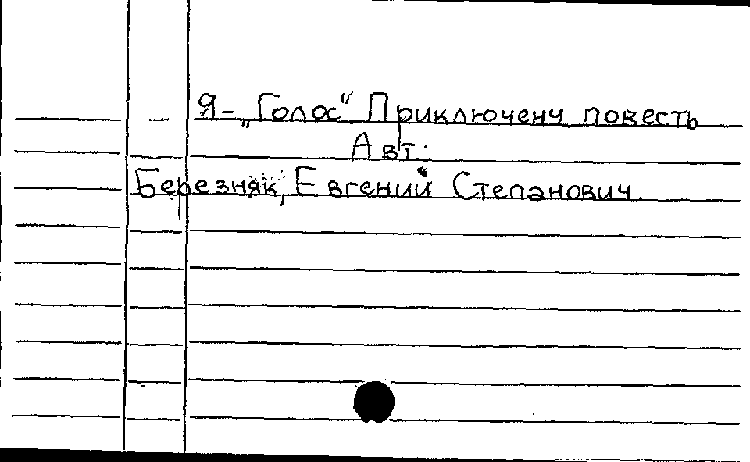 Я – „Голос" Приключенч повесть
Авт.:
Березняк, Евгений Степанович